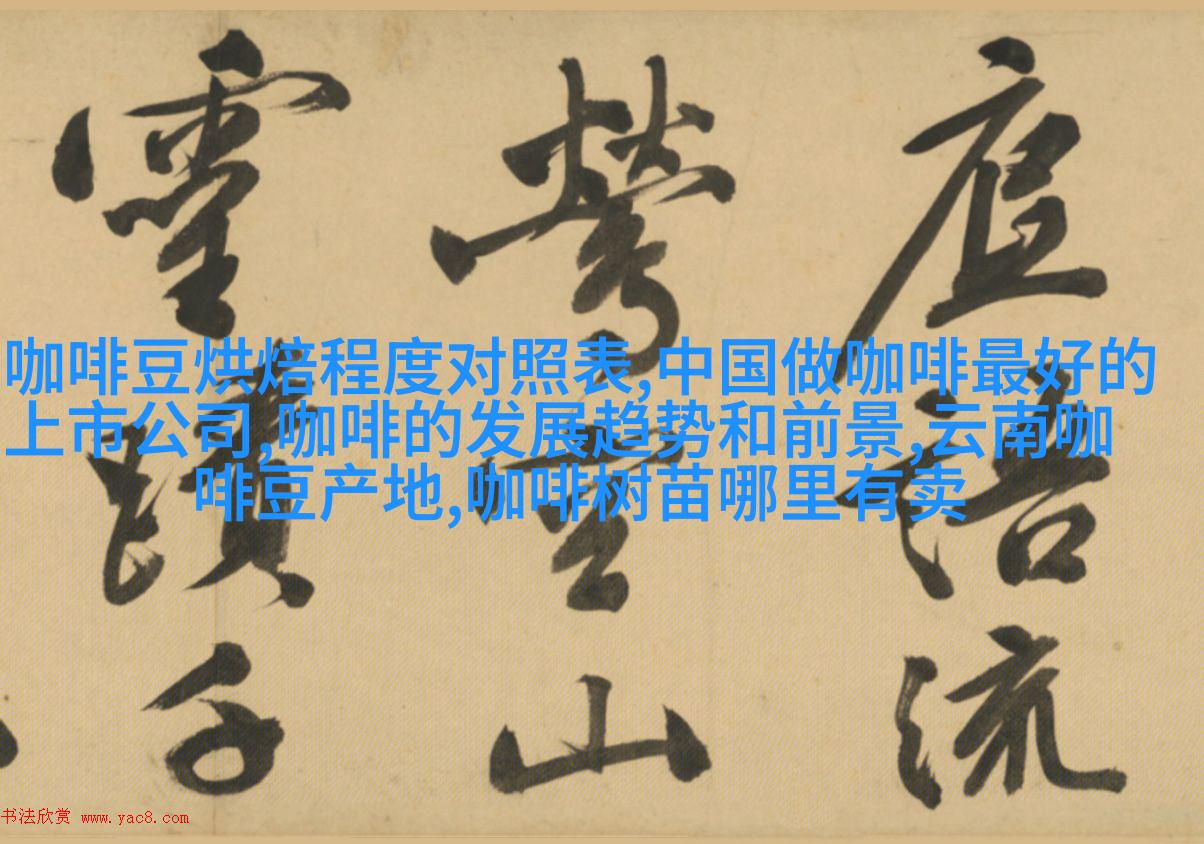 咖啡豆烘焙程度对照表,中国做咖啡最好的
上市公司,咖啡的发展趋势和前景,云南咖
啡豆产地,咖啡树苗哪里有卖
語流
鶯空山
靈蹟千
书法欣赏 www.yac8.com